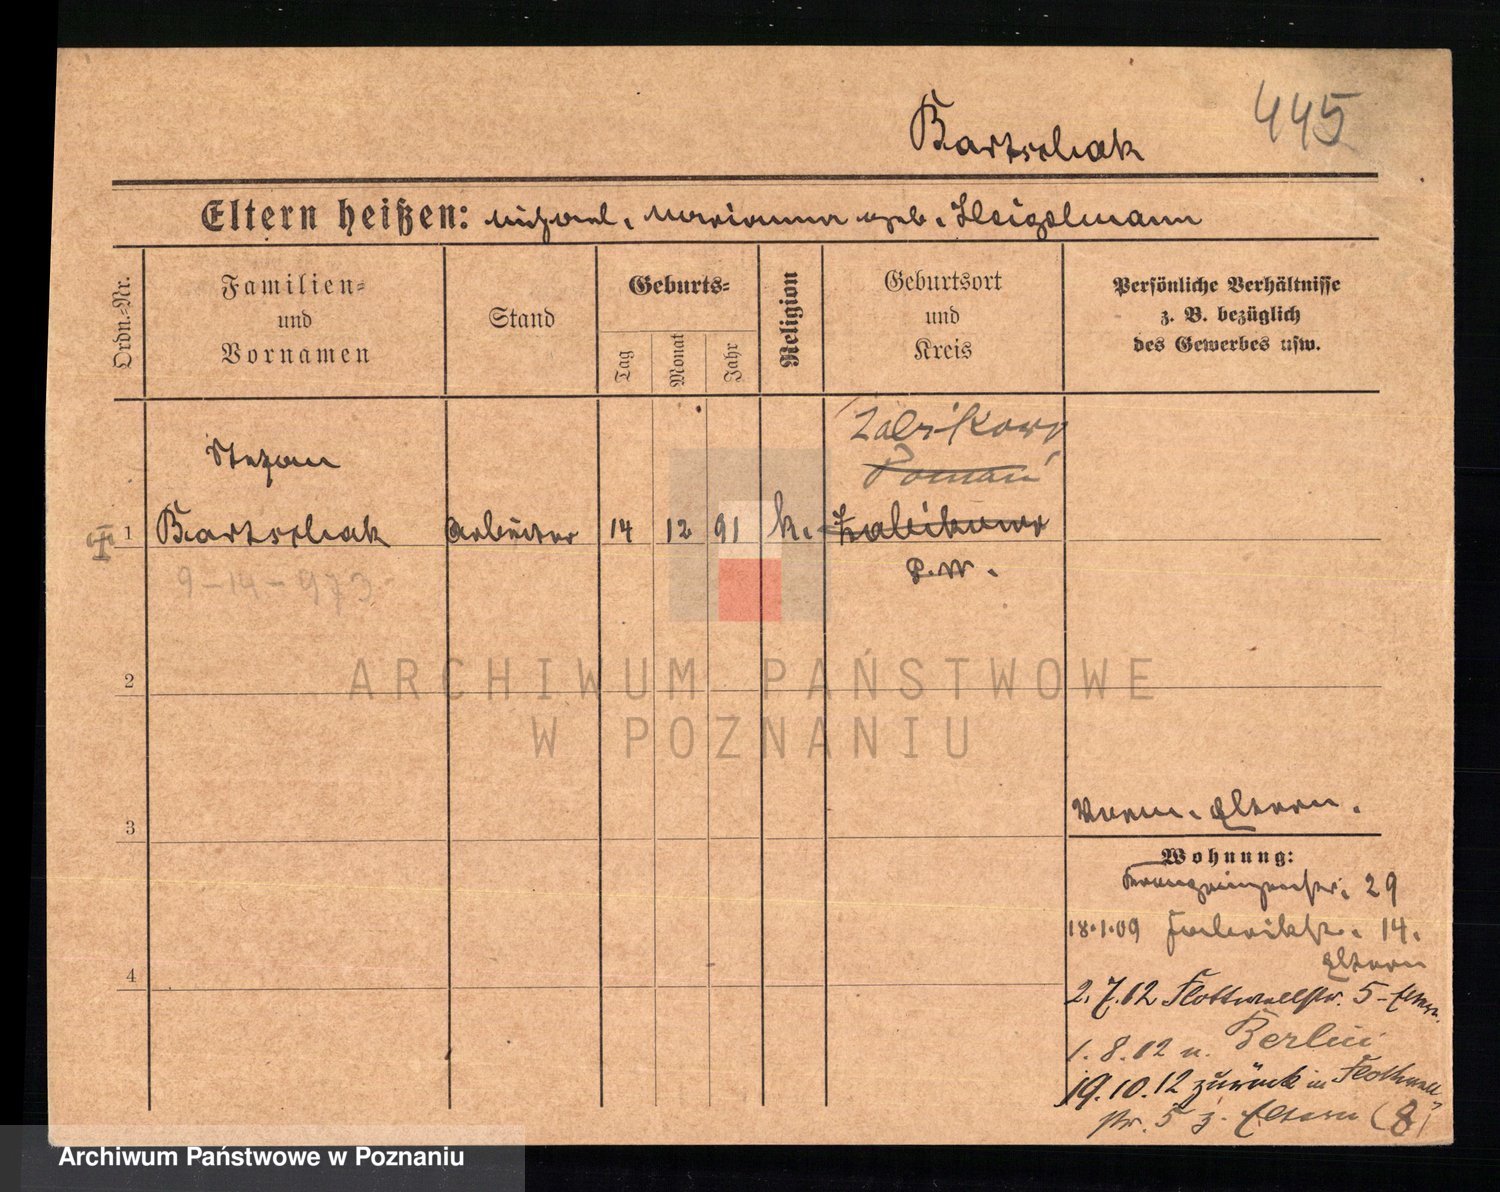 445
Bartschak
Eltern heißen: Michael, Marianna geb. Heigelmann
Ordn.-Nr.
Familien-
und
Vornamen
Stand
Geburts-
Tag
Monat
Jahr
Religion
Geburtsort
und
Kreis
Persönliche Verhältnisse
z. B. bezüglich
des Gewerbes usw.
Stefan
Zabikowo
Poznań
1 Bartschak Arbeiter 14 12 91 k. Zabikowo
P. W.
9-14-973
2
3
4
ARCHIWUM PAŃSTWOWE
W POZNANIU
Eltern.
Wohnung:
Kronprinzenstr. 29
18.1.09 Fabrikstr. 14.
Eltern
2.7.12 Flottwellstr. 5 - Eltern.
1.8.12 n. Berlin
19.10.12 zurück in Flottwell-
str. 5 z. Eltern (8)
Archiwum Państwowe w Poznaniu